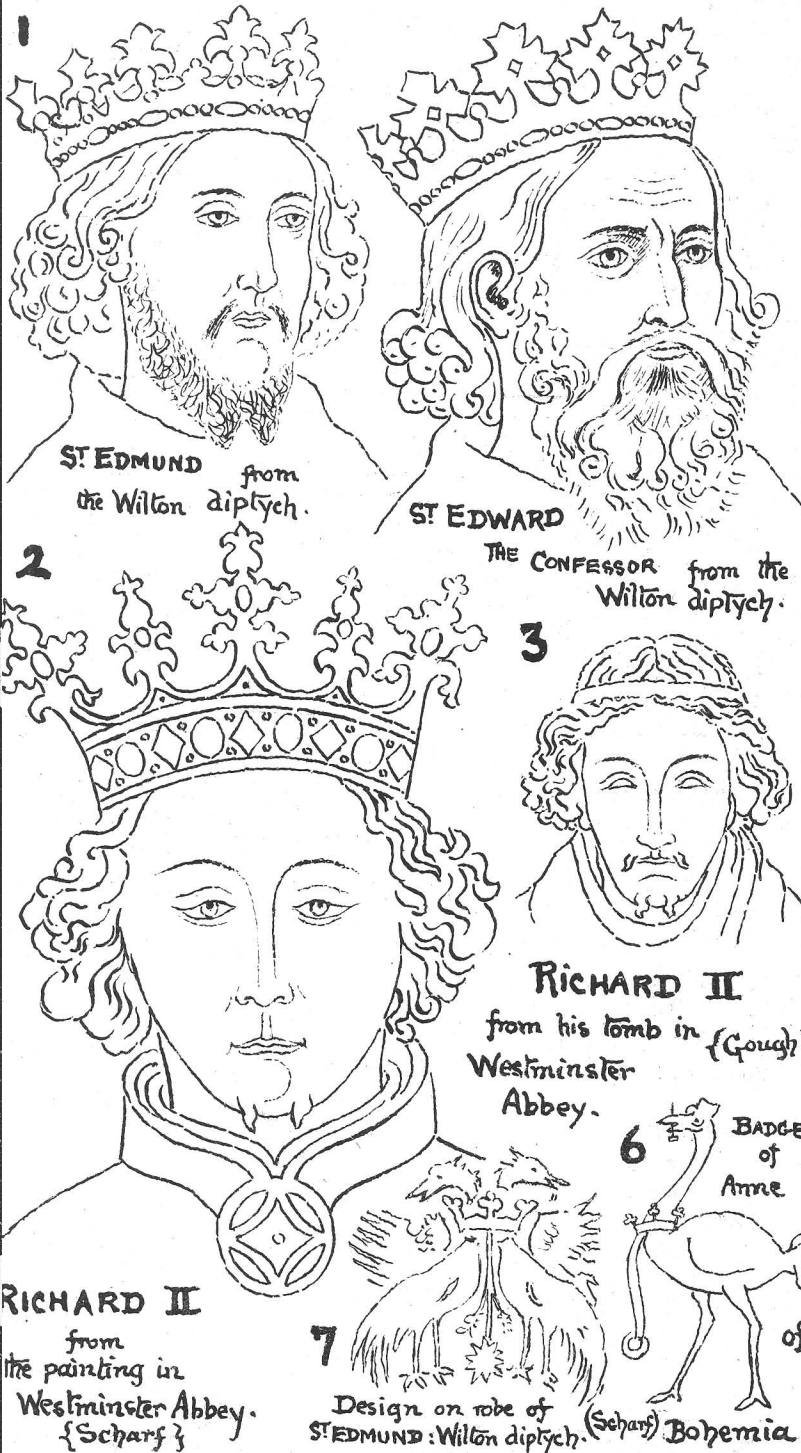 1
ST EDMUND from
the Wilton diptych.
ST EDWARD
THE CONFESSOR from the
Wilton diptych.
2
3
RICHARD II
from his tomb in {Gough
Westminster
Abbey.
6
BADGE
of
Anne
of
Bohemia
RICHARD II
from
the painting in
Westminster Abbey.
{Scharf}
7
Design on robe of
ST EDMUND: Wilton diptych. (Scharf)